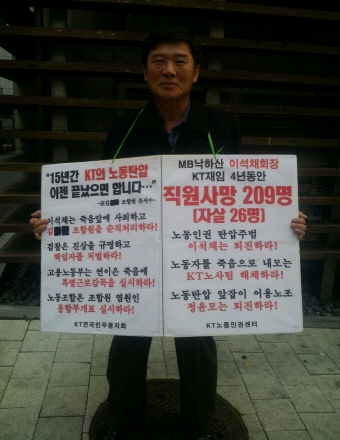 "15년간 KT의 노동탄압
이젠 끝났으면 합니다..."
조합원 유서中
이석채는 죽음앞에 사죄하고
김 조합원을 순직처리하라!
검찰은 진상을 규명하고
책임자를 처벌하라!
고용노동부는 연이은 죽음에
특별근로감독을 실시하라!
노동조합은 조합원 염원인
통합투개표 실시하라!
KT전국민주동지회
MB낙하산 이석채회장
KT재임 4년동안
직원사망 209명
(자살 26명)
노동인권 탄압주범
이석채는 퇴진하라!
노동자를 죽음으로 내모는
KT노사팀 해체하라!
노동탄압 앞잡이 어용노조
정윤모는 퇴진하라!
KT노동인권센터